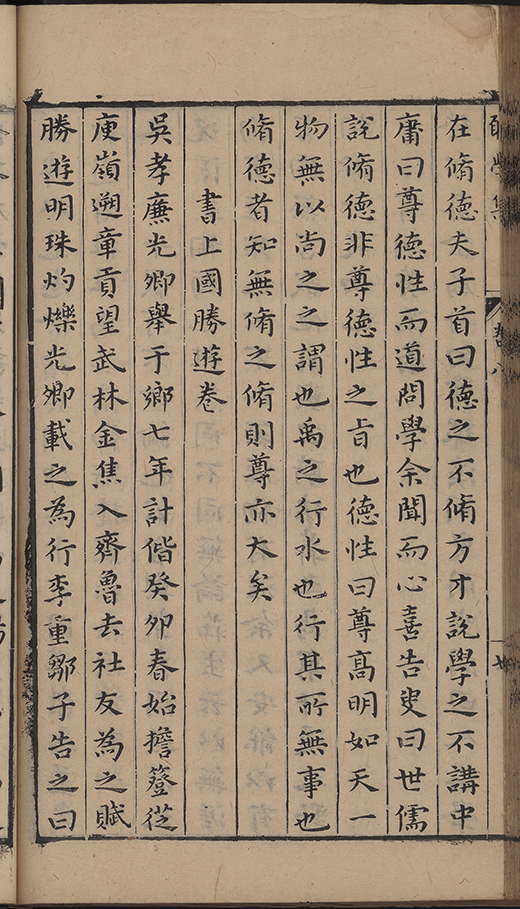 在脩德夫子首曰德之不脩方才說學之不講中
庸曰尊德性而道問學余聞而心喜告叟曰世儒
說脩德非尊德性之旨也德性曰尊高明如天一
物無以尚之之謂也禹之行水也行其所無事也
脩德者知無脩之脩則尊亦大矣
書上國勝遊卷
吳孝廉光卿舉于鄉七年計偕癸卯春始擔簦從
庾嶺遡章貢望武林金焦入齊魯去社友為之賦
勝遊明珠灼爍光卿載之為行李重鄒子告之曰